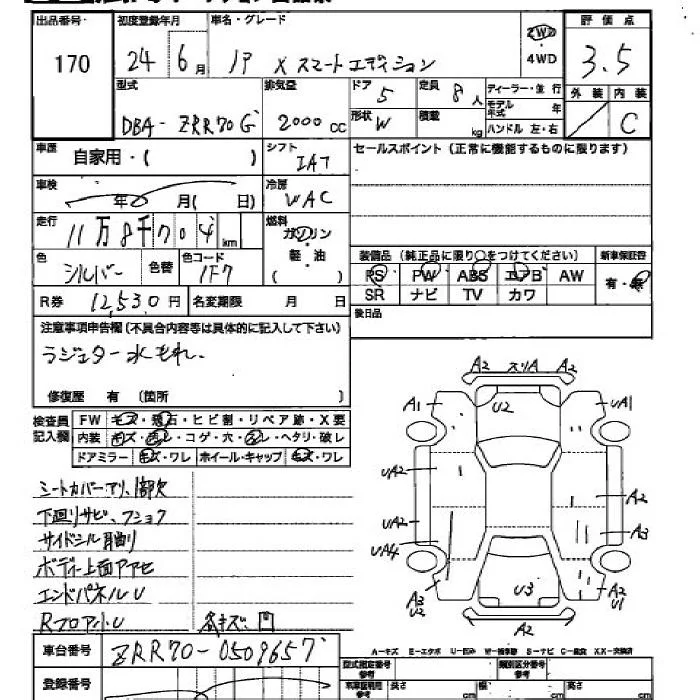 出品番号 初度登録年月 車名・グレード 2WD 評価点
170 24年 6月 ノア X スマートエディション 4WD 3.5
型式 排気量 ドア 5 定員 8人 ディーラー・並行 外装 内装
DBA-ZRR70G 2000cc 形状 W 積載 kg モデル年式 年 ハンドル 左・右 C
車歴 自家用・( ) シフト IAT セールスポイント (正常に機能するものに限ります)
車検 年 月( 日) 冷房 WAC
走行 11万8千704km 燃料 ガソリン
色 シルバー 色替 色コード 1F7 軽・油 ( ) 装備品 (純正品に限り○をつけてください) 新車保証書
PS PW ABS エアB AW 有・無
R券 12,530円 名変期限 月 日 SR ナビ TV カワ
注意事項申告欄(不具合内容等は具体的に記入して下さい) 後日品
ラジエター水もれ、
修復歴 有 (箇所 )
検査員記入欄 FW キズ・飛石・ヒビ割・リペア跡・X要
内装 コゲ・穴・ ・ヘタリ・破レ
ドアミラー キズ・ワレ ホイール・キャップ キズ・ワレ
A2 スリA A2
A1 U2 UA1
UA2 A2
UA2 A3
UA4
A3 U2 U3 A2 U1
A2
シートカバー
下廻りサビ、
サイドシル
ボディー上面
エンドパネルU
U 各キズ、凹
車台番号 ZRR70-0509657
A-キズ E-エクボ U-凹み S-サビ C-腐食 XX-交換済
登録番号 型式指定番号 類別区分番号
長さ cm 幅 cm 高さ cm